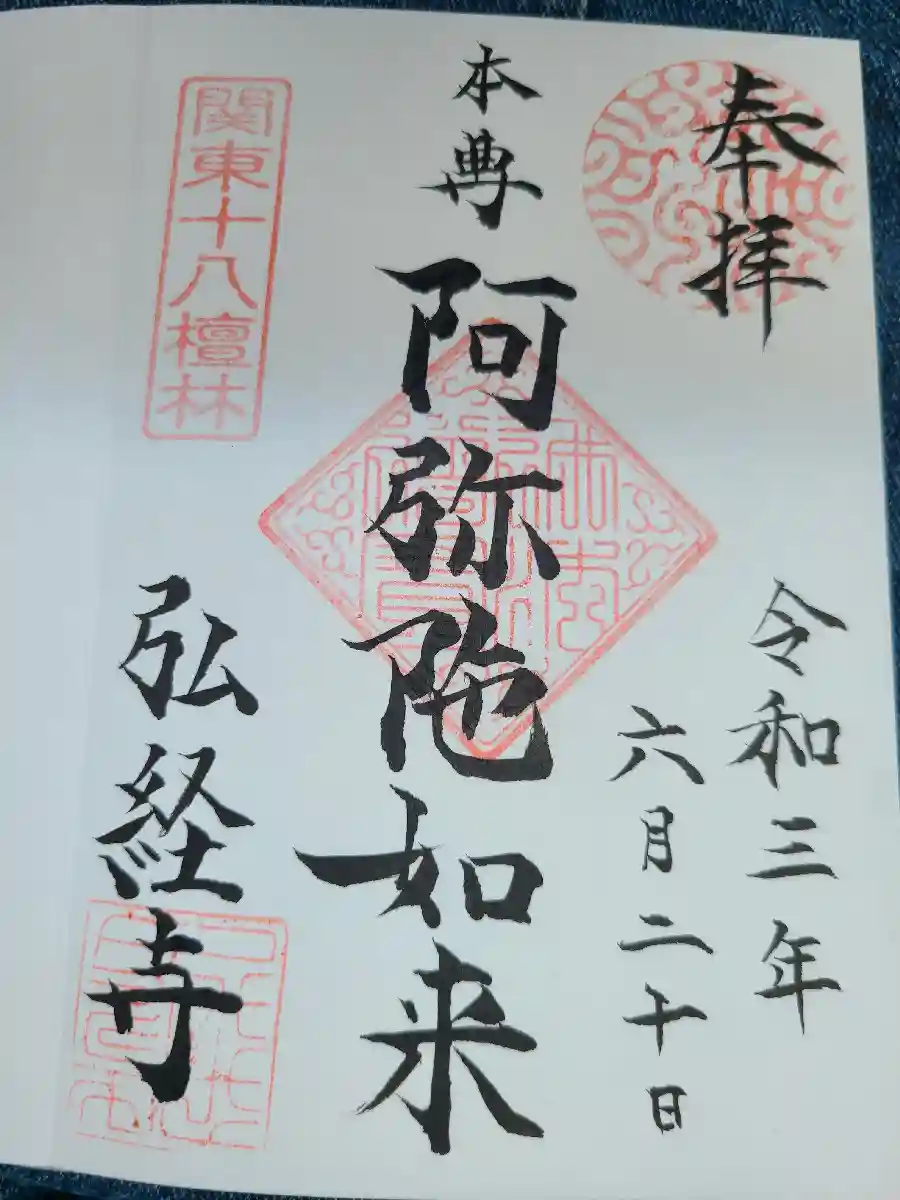 奉拝
令和三年
六月二十日
本尊
阿弥陀如来
関東十八檀林
弘経寺